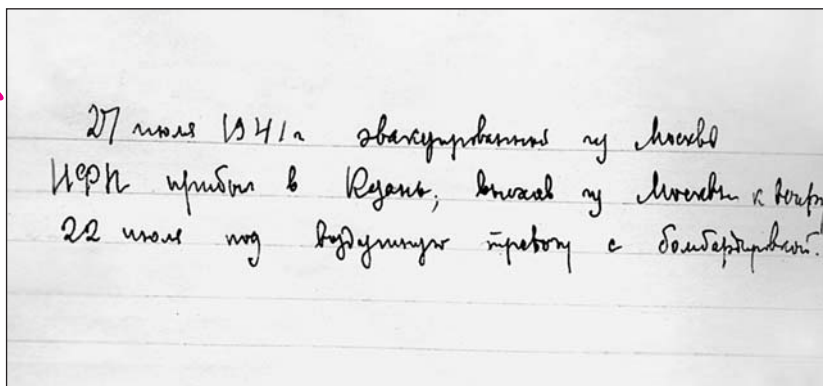 27 июля 1941 г эвакуированный из Москвы
ИФП прибыл в Казань, выехав из Москвы к вечеру
22 июля под воздушную тревогу с бомбардировкой.